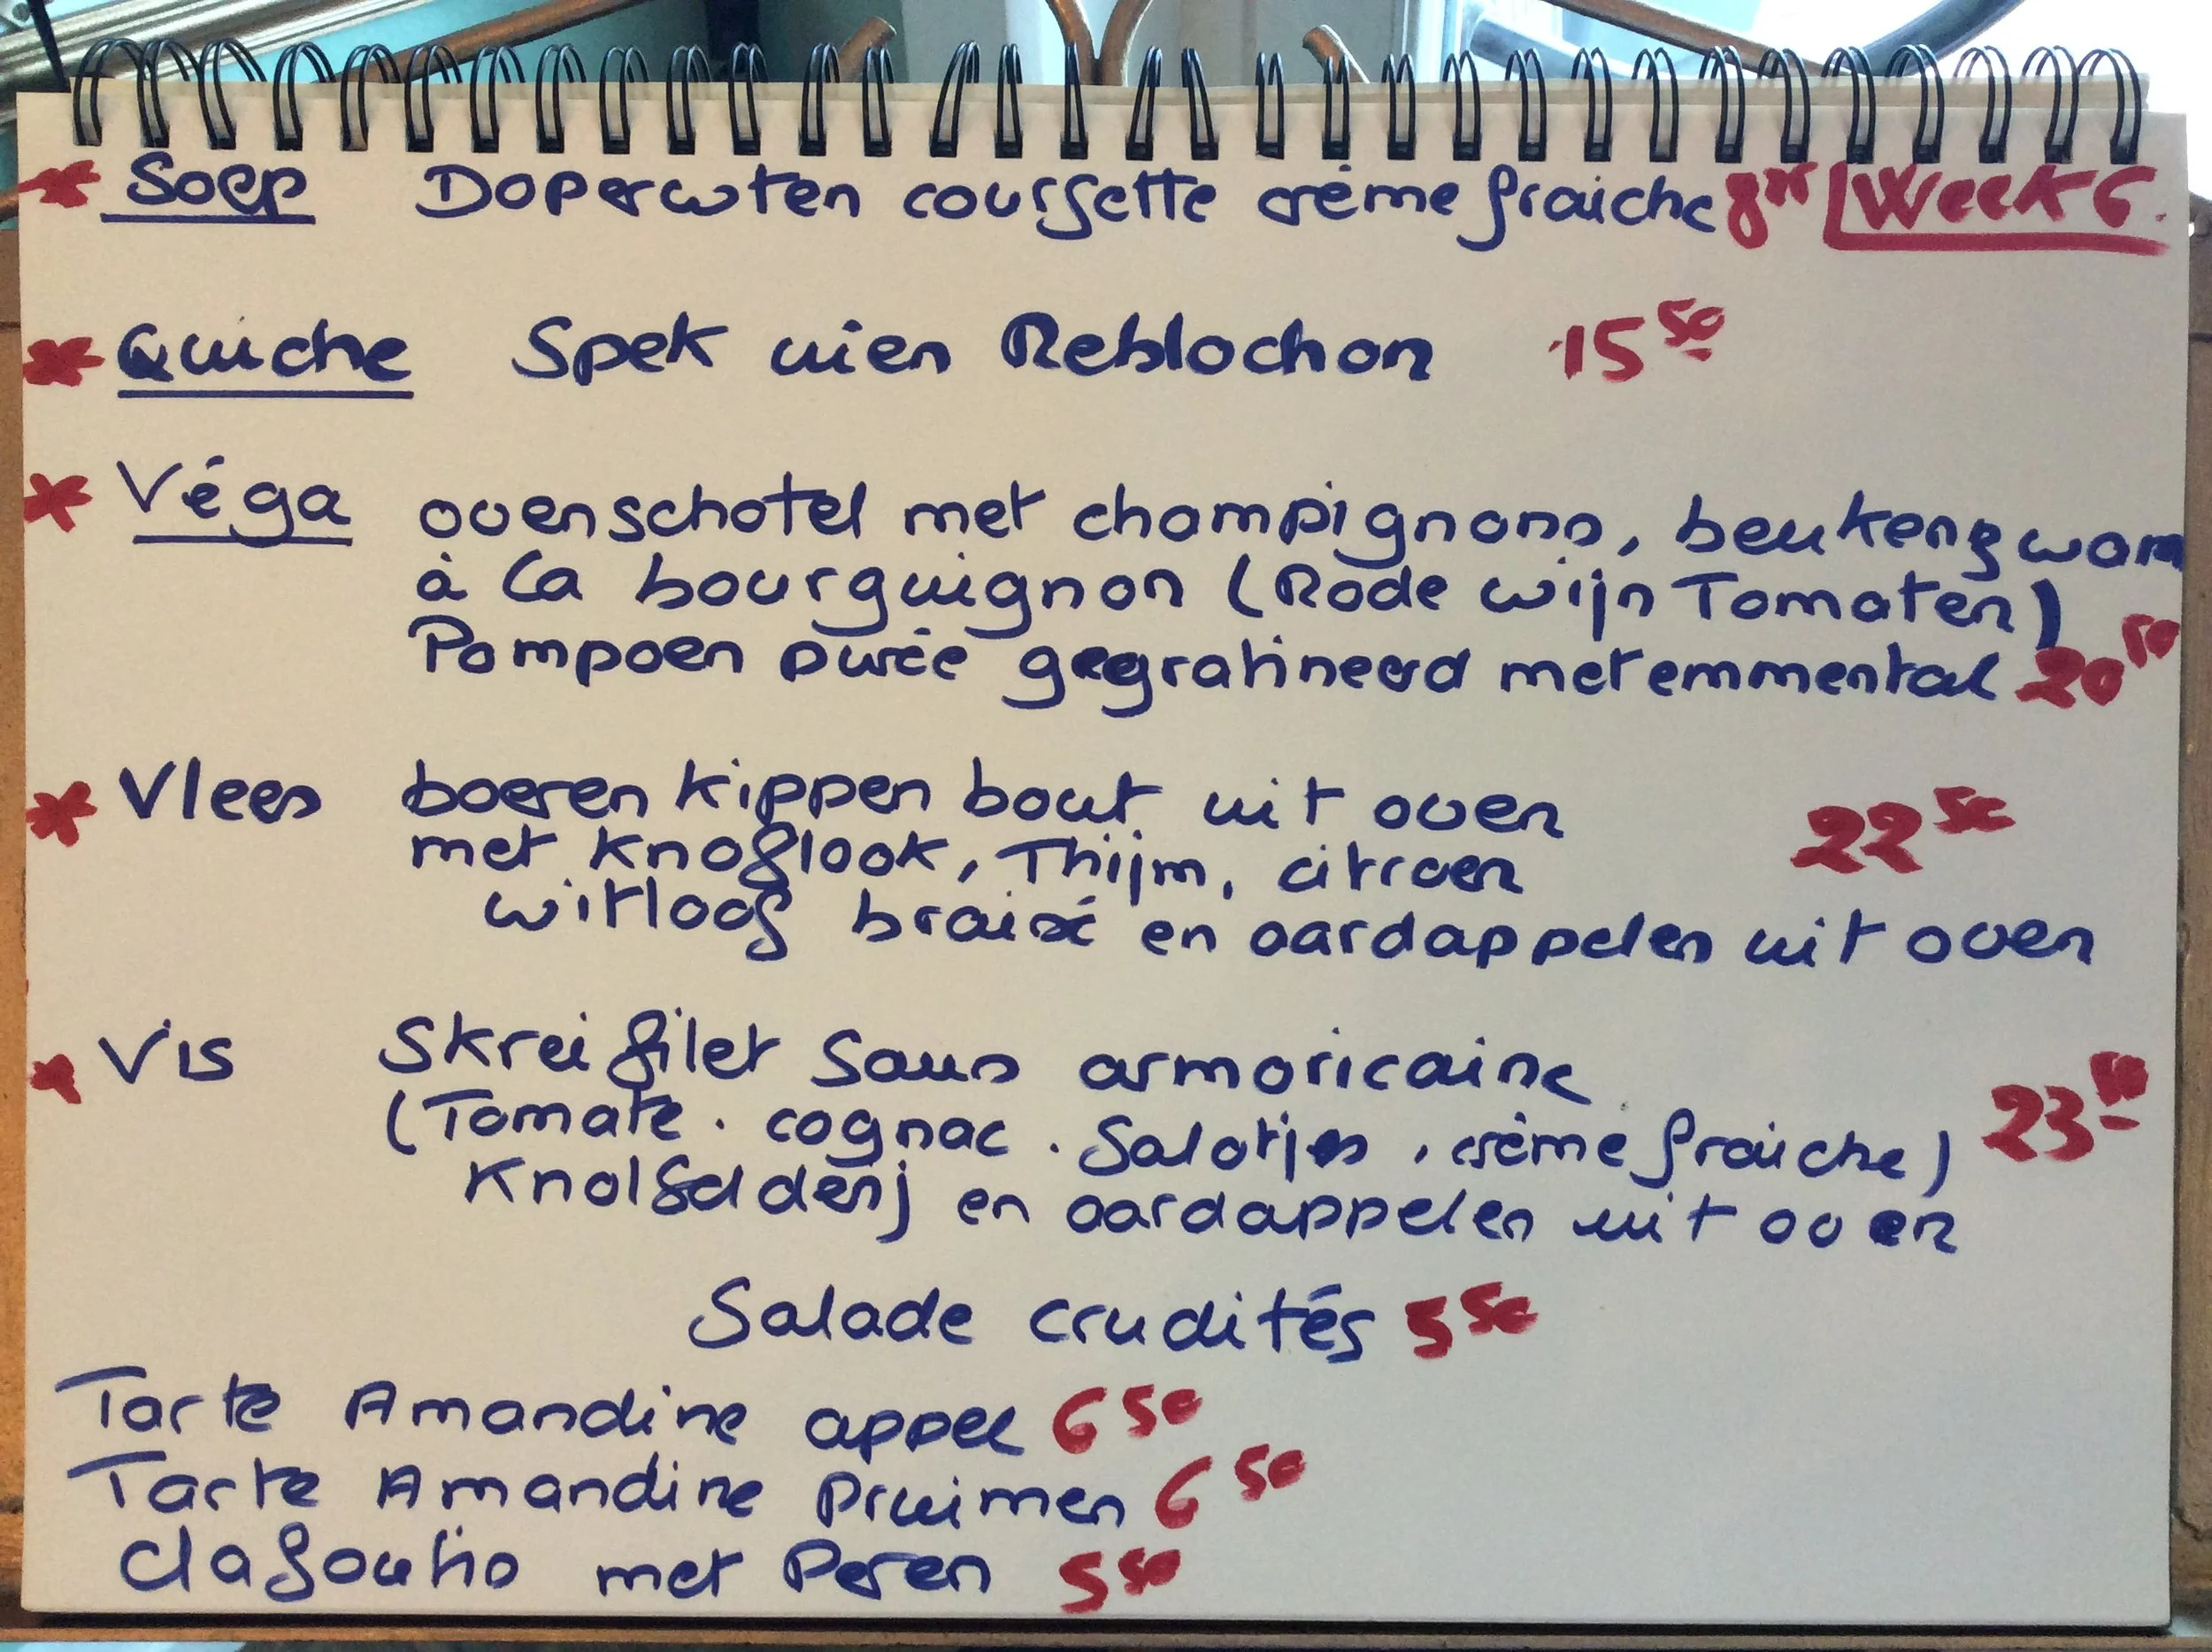 Soep Doperwten courgette crème fraiche Week 6.
Quiche Spek uien Reblochon 15 50
Véga ovenschotel met champignons, beukenzwam
à la bourguignon (Rode wijn Tomaten)
Pompoen purée gegratineerd met emmental 20 50
Vlees boeren kippen bout uit oven 22 50
met knoflook, Thijm, citroen
witloof braisé en aardappelen uit oven
Vis Skrei filet Saus armoricaine
(Tomate . cognac . Salotjes , crème fraiche) 23 50
Knolselderij en aardappelen uit oven
Salade crudités 5 50
Tarte Amandine appel 6 50
Tarte Amandine Pruimen 6 50
clafoutis met Peren 5 50